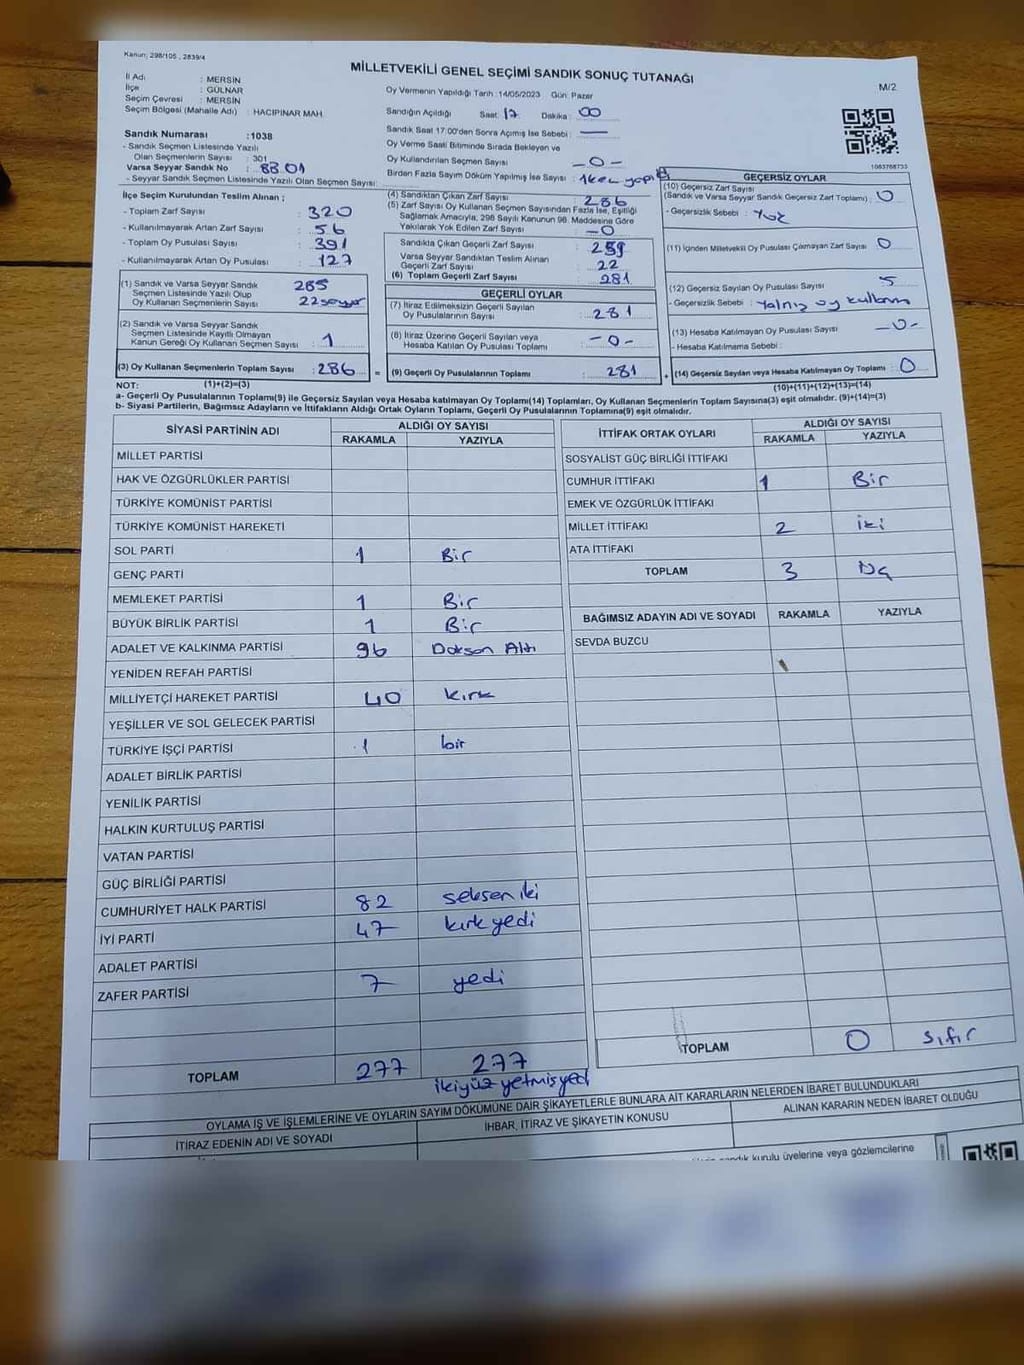 Kanun: 298/105 , 2839/4
MİLLETVEKİLİ GENEL SEÇİMİ SANDIK SONUÇ TUTANAĞI
M/2
İl Adı : MERSİN
İlçe : GÜLNAR
Seçim Çevresi : MERSİN
Seçim Bölgesi (Mahalle Adı) : HACIPINAR MAH.
Sandık Numarası : 1038
- Sandık Seçmen Listesinde Yazılı
Olan Seçmenlerin Sayısı : 301
Varsa Seyyar Sandık No : 8801
- Seyyar Sandık Seçmen Listesinde Yazılı Olan Seçmen Sayısı:
Oy Vermenin Yapıldığı Tarih : 14/05/2023 Gün: Pazar
Sandığın Açıldığı Saat: 17 Dakika: 00
Sandık Saat 17:00'den Sonra Açılmış İse Sebebi : —
Oy Verme Saati Bitiminde Sırada Bekleyen ve
Oy Kullandırılan Seçmen Sayısı -0-
Birden Fazla Sayım Döküm Yapılmış İse Sayısı :
1083768733
İlçe Seçim Kurulundan Teslim Alınan ;
- Toplam Zarf Sayısı : 320
- Kullanılmayarak Artan Zarf Sayısı : 56
- Toplam Oy Pusulası Sayısı : 391
- Kullanılmayarak Artan Oy Pusulası : 127
(1) Sandık ve Varsa Seyyar Sandık
Seçmen Listesinde Yazılı Olup
Oy Kullanan Seçmenlerin Sayısı : 285
22 seyyar
(2) Sandık ve Varsa Seyyar Sandık
Seçmen Listesinde Kayıtlı Olmayan
Kanun Gereği Oy Kullanan Seçmen Sayısı : 1
(3) Oy Kullanan Seçmenlerin Toplam Sayısı : 286 =
(1)+(2)=(3)
(4) Sandıktan Çıkan Zarf Sayısı : 286
(5) Zarf Sayısı Oy Kullanan Seçmen Sayısından Fazla İse, Eşitliği
Sağlamak Amacıyla, 298 Sayılı Kanunun 98. Maddesine Göre
Yakılarak Yok Edilen Zarf Sayısı : -0
Sandıkta Çıkan Geçerli Zarf Sayısı : 259
Varsa Seyyar Sandıktan Teslim Alınan
Geçerli Zarf Sayısı : 22
(6) Toplam Geçerli Zarf Sayısı : 281
GEÇERLİ OYLAR
(7) İtiraz Edilmeksizin Geçerli Sayılan
Oy Pusulalarının Sayısı : 281
(8) İtiraz Üzerine Geçerli Sayılan veya
Hesaba Katılan Oy Pusulası Toplamı : -0-
(9) Geçerli Oy Pusulalarının Toplamı : 281 +
GEÇERSİZ OYLAR
(10) Geçersiz Zarf Sayısı
(Sandık ve Varsa Seyyar Sandık Geçersiz Zarf Toplamı) : 0
- Geçersizlik Sebebi : Yok
(11) İçinden Milletvekili Oy Pusulası Çıkmayan Zarf Sayısı : 0
(12) Geçersiz Sayılan Oy Pusulası Sayısı : 5
- Geçersizlik Sebebi : Yalnış oy kullanım
(13) Hesaba Katılmayan Oy Pusulası Sayısı : -0-
- Hesaba Katılmama Sebebi :
(14) Geçersiz Sayılan veya Hesaba Katılmayan Oy Toplamı : 0
(10)+(11)+(12)+(13)=(14)
NOT:
a- Geçerli Oy Pusulalarının Toplamı(9) ile Geçersiz Sayılan veya Hesaba katılmayan Oy Toplamı(14) Toplamları, Oy Kullanan Seçmenlerin Toplam Sayısına(3) eşit olmalıdır. (9)+(14)=(3)
b- Siyasi Partilerin, Bağımsız Adayların ve İttifakların Aldığı Ortak Oyların Toplamı, Geçerli Oy Pusulalarının Toplamına(9) eşit olmalıdır.
SİYASİ PARTİNİN ADI ALDIĞI OY SAYISI
RAKAMLA YAZIYLA
MİLLET PARTİSİ
HAK VE ÖZGÜRLÜKLER PARTİSİ
TÜRKİYE KOMÜNİST PARTİSİ
TÜRKİYE KOMÜNİST HAREKETİ
SOL PARTİ 1 Bir
GENÇ PARTİ
MEMLEKET PARTİSİ 1 Bir
BÜYÜK BİRLİK PARTİSİ 1 Bir
ADALET VE KALKINMA PARTİSİ 96 Doksan Altı
YENİDEN REFAH PARTİSİ
MİLLİYETÇİ HAREKET PARTİSİ 40 kırk
YEŞİLLER VE SOL GELECEK PARTİSİ
TÜRKİYE İŞÇİ PARTİSİ 1 bir
ADALET BİRLİK PARTİSİ
YENİLİK PARTİSİ
HALKIN KURTULUŞ PARTİSİ
VATAN PARTİSİ
GÜÇ BİRLİĞİ PARTİSİ
CUMHURİYET HALK PARTİSİ 82 seksen iki
İYİ PARTİ 47 kırk yedi
ADALET PARTİSİ
ZAFER PARTİSİ 7 yedi
TOPLAM 277 277
ikiyüz yetmişyedi
İTTİFAK ORTAK OYLARI ALDIĞI OY SAYISI
RAKAMLA YAZIYLA
SOSYALİST GÜÇ BİRLİĞİ İTTİFAKI
CUMHUR İTTİFAKI 1 Bir
EMEK VE ÖZGÜRLÜK İTTİFAKI
MİLLET İTTİFAKI 2 iki
ATA İTTİFAKI
TOPLAM 3 Üç
BAĞIMSIZ ADAYIN ADI VE SOYADI RAKAMLA YAZIYLA
SEVDA BUZCU
TOPLAM 0 sıfır
OYLAMA İŞ VE İŞLEMLERİNE VE OYLARIN SAYIM DÖKÜMÜNE DAİR ŞİKAYETLERLE BUNLARA AİT KARARLARIN NELERDEN İBARET BULUNDUKLARI
İTİRAZ EDENİN ADI VE SOYADI İHBAR, İTİRAZ VE ŞİKAYETİN KONUSU ALINAN KARARIN NEDEN İBARET OLDUĞU
sandık kurulu üyelerine veya gözlemcilerine